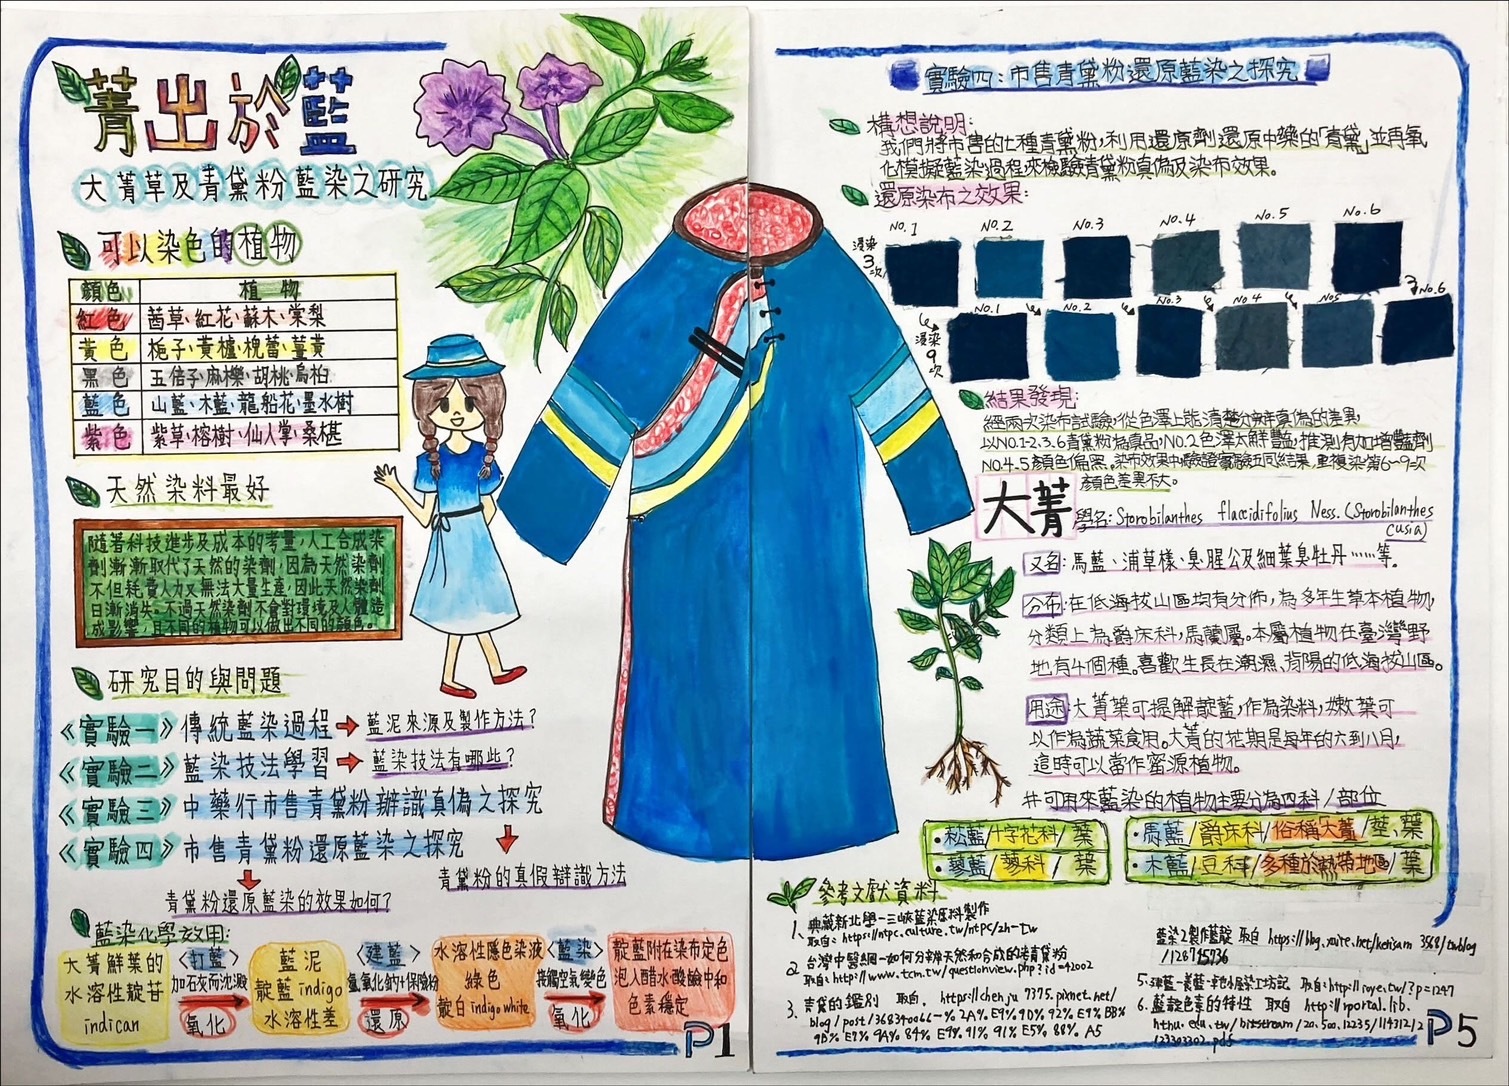 菁出於藍
大菁草及青黛粉藍染之研究
可以染色的植物
顏色 植物
紅色 茜草、紅花、蘇木、棠梨
黃色 梔子、黃櫨、槐蕾、薑黃
黑色 五倍子、麻櫟、胡桃、烏桕
藍色 山藍、木藍、龍船花、墨水樹
紫色 紫草、榕樹、仙人掌、桑椹
天然染料最好
隨著科技進步及成本的考量，人工合成染
劑漸漸取代了天然的染劑，因為天然染劑
不但耗費人力又無法大量生產，因此天然染劑
日漸消失。不過天然染劑不會對環境及人體造
成影響，且不同的植物可以做出不同的顏色。
研究目的與問題
《實驗一》傳統藍染過程→藍泥來源及製作方法？
《實驗二》藍染技法學習→藍染技法有哪些？
《實驗三》中藥行市售青黛粉辨識真偽之探究
《實驗四》市售青黛粉還原藍染之探究
青黛粉的真假辯識方法
青黛粉還原藍染的效果如何？
藍染化學效用：
大菁鮮葉的
水溶性靛苷
indican
〈打藍〉
加石灰而沈澱
氧化
藍泥
靛藍indigo
水溶性差
〈建藍〉
氫氧化鈉+保險粉
還原
水溶性隱色染液
綠色
靛白indigo white
〈藍染〉
接觸空氣變色
氧化
靛藍附在染布定色
泡入醋水酸鹼中和
色素穩定
P1
實驗四：市售青黛粉還原藍染之探究
構想說明：
我們將市售的七種青黛粉，利用還原劑還原中藥的「青黛」並再氧
化模擬藍染過程來檢驗青黛粉真偽及染布效果。
還原染布之效果：
浸染3次
No.1 No.2 No.3 No.4 No.5 No.6
浸染9次
No.1 No.2 No.3 No.4 No5 No.6
結果發現：
經兩次染布試驗，從色澤上能清楚分辨真偽的差異，
以NO.1-2.3.6青黛粉為真品，NO.2色澤太鮮豔，推測有加增豔劑
NO.4.5顏色偏黑。染布效果中驗證實驗五同結果，重複染第6~9次
顏色差異不大。
大菁
學名：Storobilanthes flaccidifolius Ness.(Storobilanthes
cusia)
又名：馬藍、浦草樣、臭腥公及細葉臭牡丹……等。
分布：在低海拔山區均有分佈，為多年生草本植物，
分類上為爵床科，馬蘭屬。本屬植物在臺灣野
地有4個種。喜歡生長在潮濕、背陽的低海拔山區。
用途：大菁葉可提解靛藍，作為染料，嫩葉可
以作為蔬菜食用。大菁的花期是每年的六到八月，
這時可以當作蜜源植物。
#可用來藍染的植物主要分為四科/部位
•菘藍/十字花科/葉
•蓼藍/蓼科/葉
•馬藍/爵床科/俗稱大菁/莖、葉
•木藍/豆科/多種於熱帶地區/葉
參考文獻資料
1. 典藏新北學-三峽藍染原料製作
取自：https://ntpc.culture.tw/ntpc/zh-tw
2. 台灣中醫網-如何分辨天然和合成的考青黛粉
取自：http://www.tcm.tw/questionview.php?id=42002
3. 青黛的鑑別 取自. https://chenju 7375.pixnet.net/
blog/post/368340066-% 2A% E9% 9D% 92% E9% BB%
9B% E7% 9A% 84% E9% 91% 91% E5% 88% A5
藍染2製作藍靛 取自 https://blog.xuite.net/kerisam 3568/twblog
/128715736
取自：http://roye.tw/?p=1247
6. 藍靛色素的特性 取自 http://rportal.lib.
ntnu.edu.tw/bitstream/20.500.12235/114312/2
P5